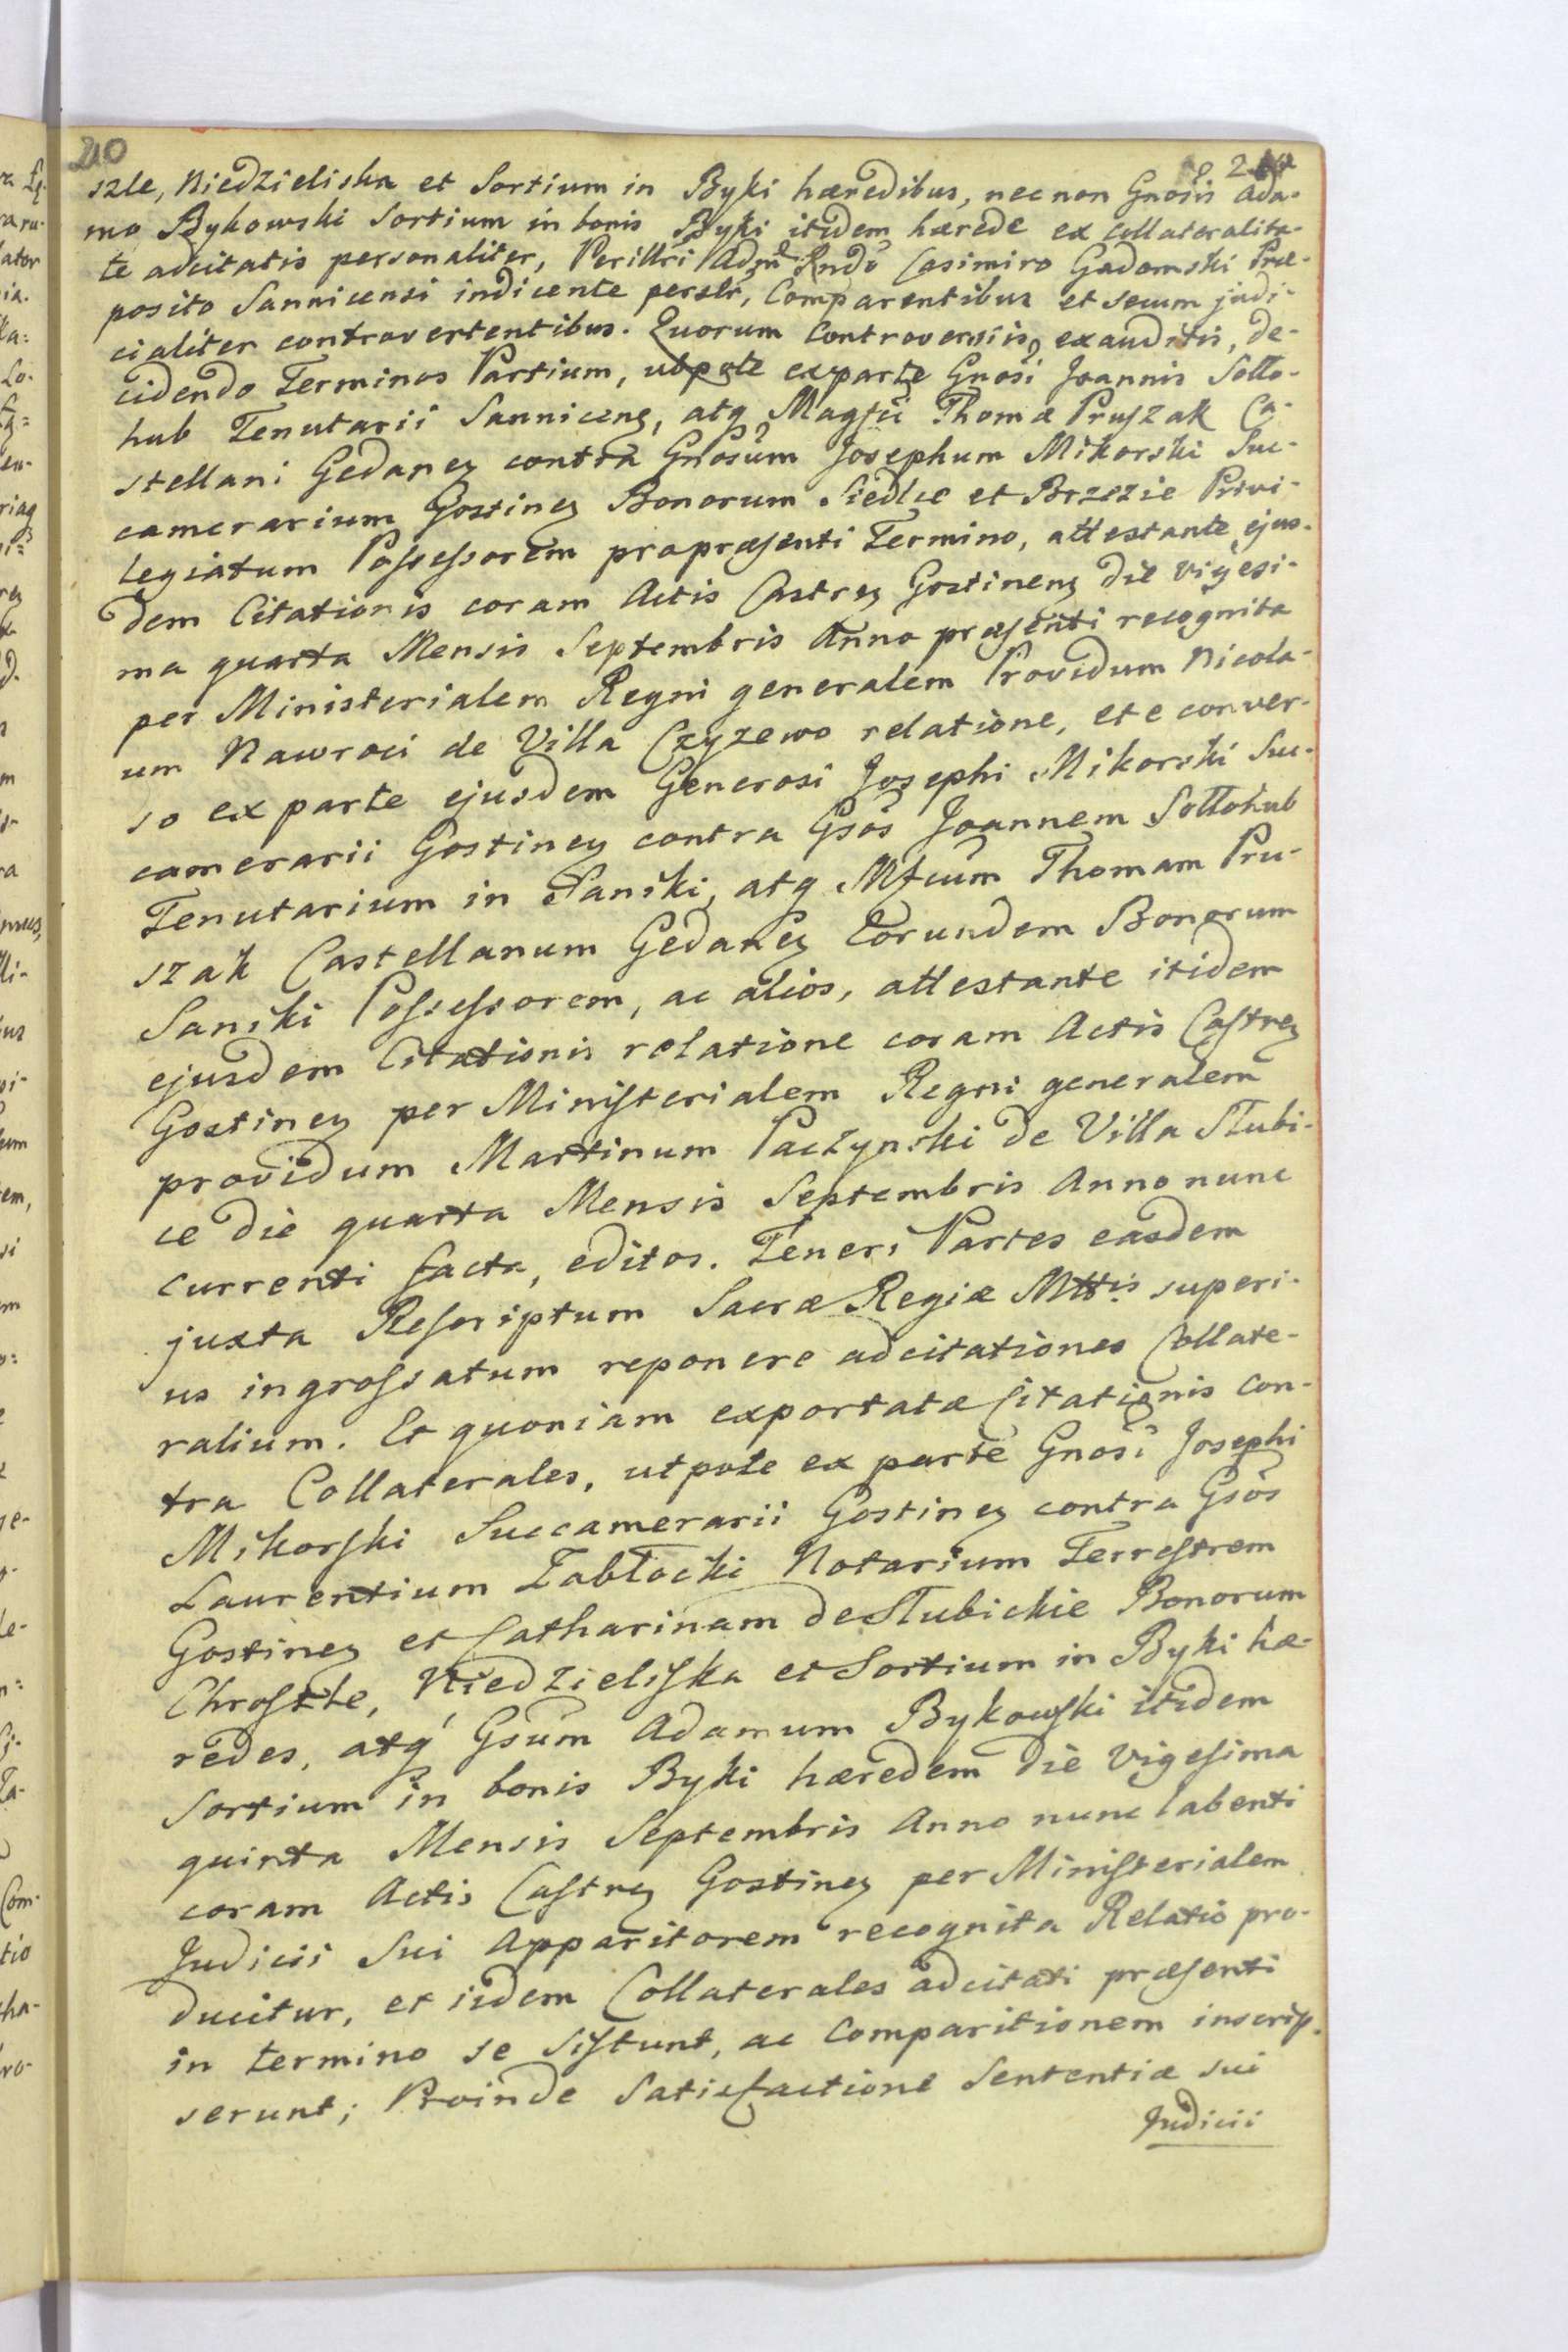 210
szle, Niedzieliska et Sortium in Byki hæredibus, necnon Gnosis Ada-
mo Bykowski Sortium in bonis Byki itidem hærede ex collateralita-
te adcitatis personaliter, Perillri Admº Rndo Casimiro Gadomski Præ-
posito Sannicensi indicente perslr, Comparentibus et secum judi-
cialiter controvertentibus. Quorum Controversiis exauditis, de-
cidendo Terminos Partium, utpote exparte Gnosi Joannis Sołło-
hub Tenutarii Sanniceng, atq Magfci Thomæ Pruszak Ca-
stellani Gedaneg contra Gnosum Josephum Mikorski Suc-
camerarium Gostineg Bonorum Siedlce et Brzezie Privi-
legiatum Possessorem propræsenti Termino, attestante ejus-
dem Citationis coram Actis Castreg Gostineng die vigesi-
ma quarta Mensis Septembris Anno præsenti recognita
per Ministerialem Regni generalem Providum Nicola-
um Nawroci de Villa Czyzewo relatione, et e conver-
so ex parte ejusdem Generosi Josephi Mikorski Suc-
camerarii Gostineg contra Gsos Joannem Sołłohub
Tenutarium in Sanÿki, atq Mfcum Thomam Pru-
szak Castellanum Gedaneg Eorundem Bonorum
Saniki Possessorem, ac alios, attestante itidem
ejusdem Citationis relatione coram Actis Castreg
Gostineg per Ministerialem Regni generalem
providum Martinum Paczynski de Villa Słubi-
ce die quarta Mensis Septembris Anno nunc
currenti facta, editos. Teneri Partes easdem
juxta Rescriptum Sacræ Regiæ Mttis superi-
us ingrossatum reponere adcitationes Collate-
ralium. Et quoniam exportatæ Citationis con-
tra Collaterales, utpote ex parte Gnosi Josephi
Mikorski Succamerarii Gostineg contra Gsos
Laurentium Zabłocki Notarium Terrestrem
Gostineg et Catharinam de Słubickie Bonorum
Chroszle, Niedzieliska et Sortium in Byki hæ-
redes, atq Gsum Adamum Bykowski itidem
Sortium in bonis Byki hæredem die vigesima
quinta Mensis Septembris Anno nunc labenti
coram Actis Castreg Gostineg per Ministerialem
Judicii Sui Apparitorem recognita Relatio pro-
ducitur, et iidem Collaterales adcitati præsenti
in termino se sistunt, ac Comparitionem inscrip-
serunt; Proinde Satisfactione Sententiæ sui
Judicii